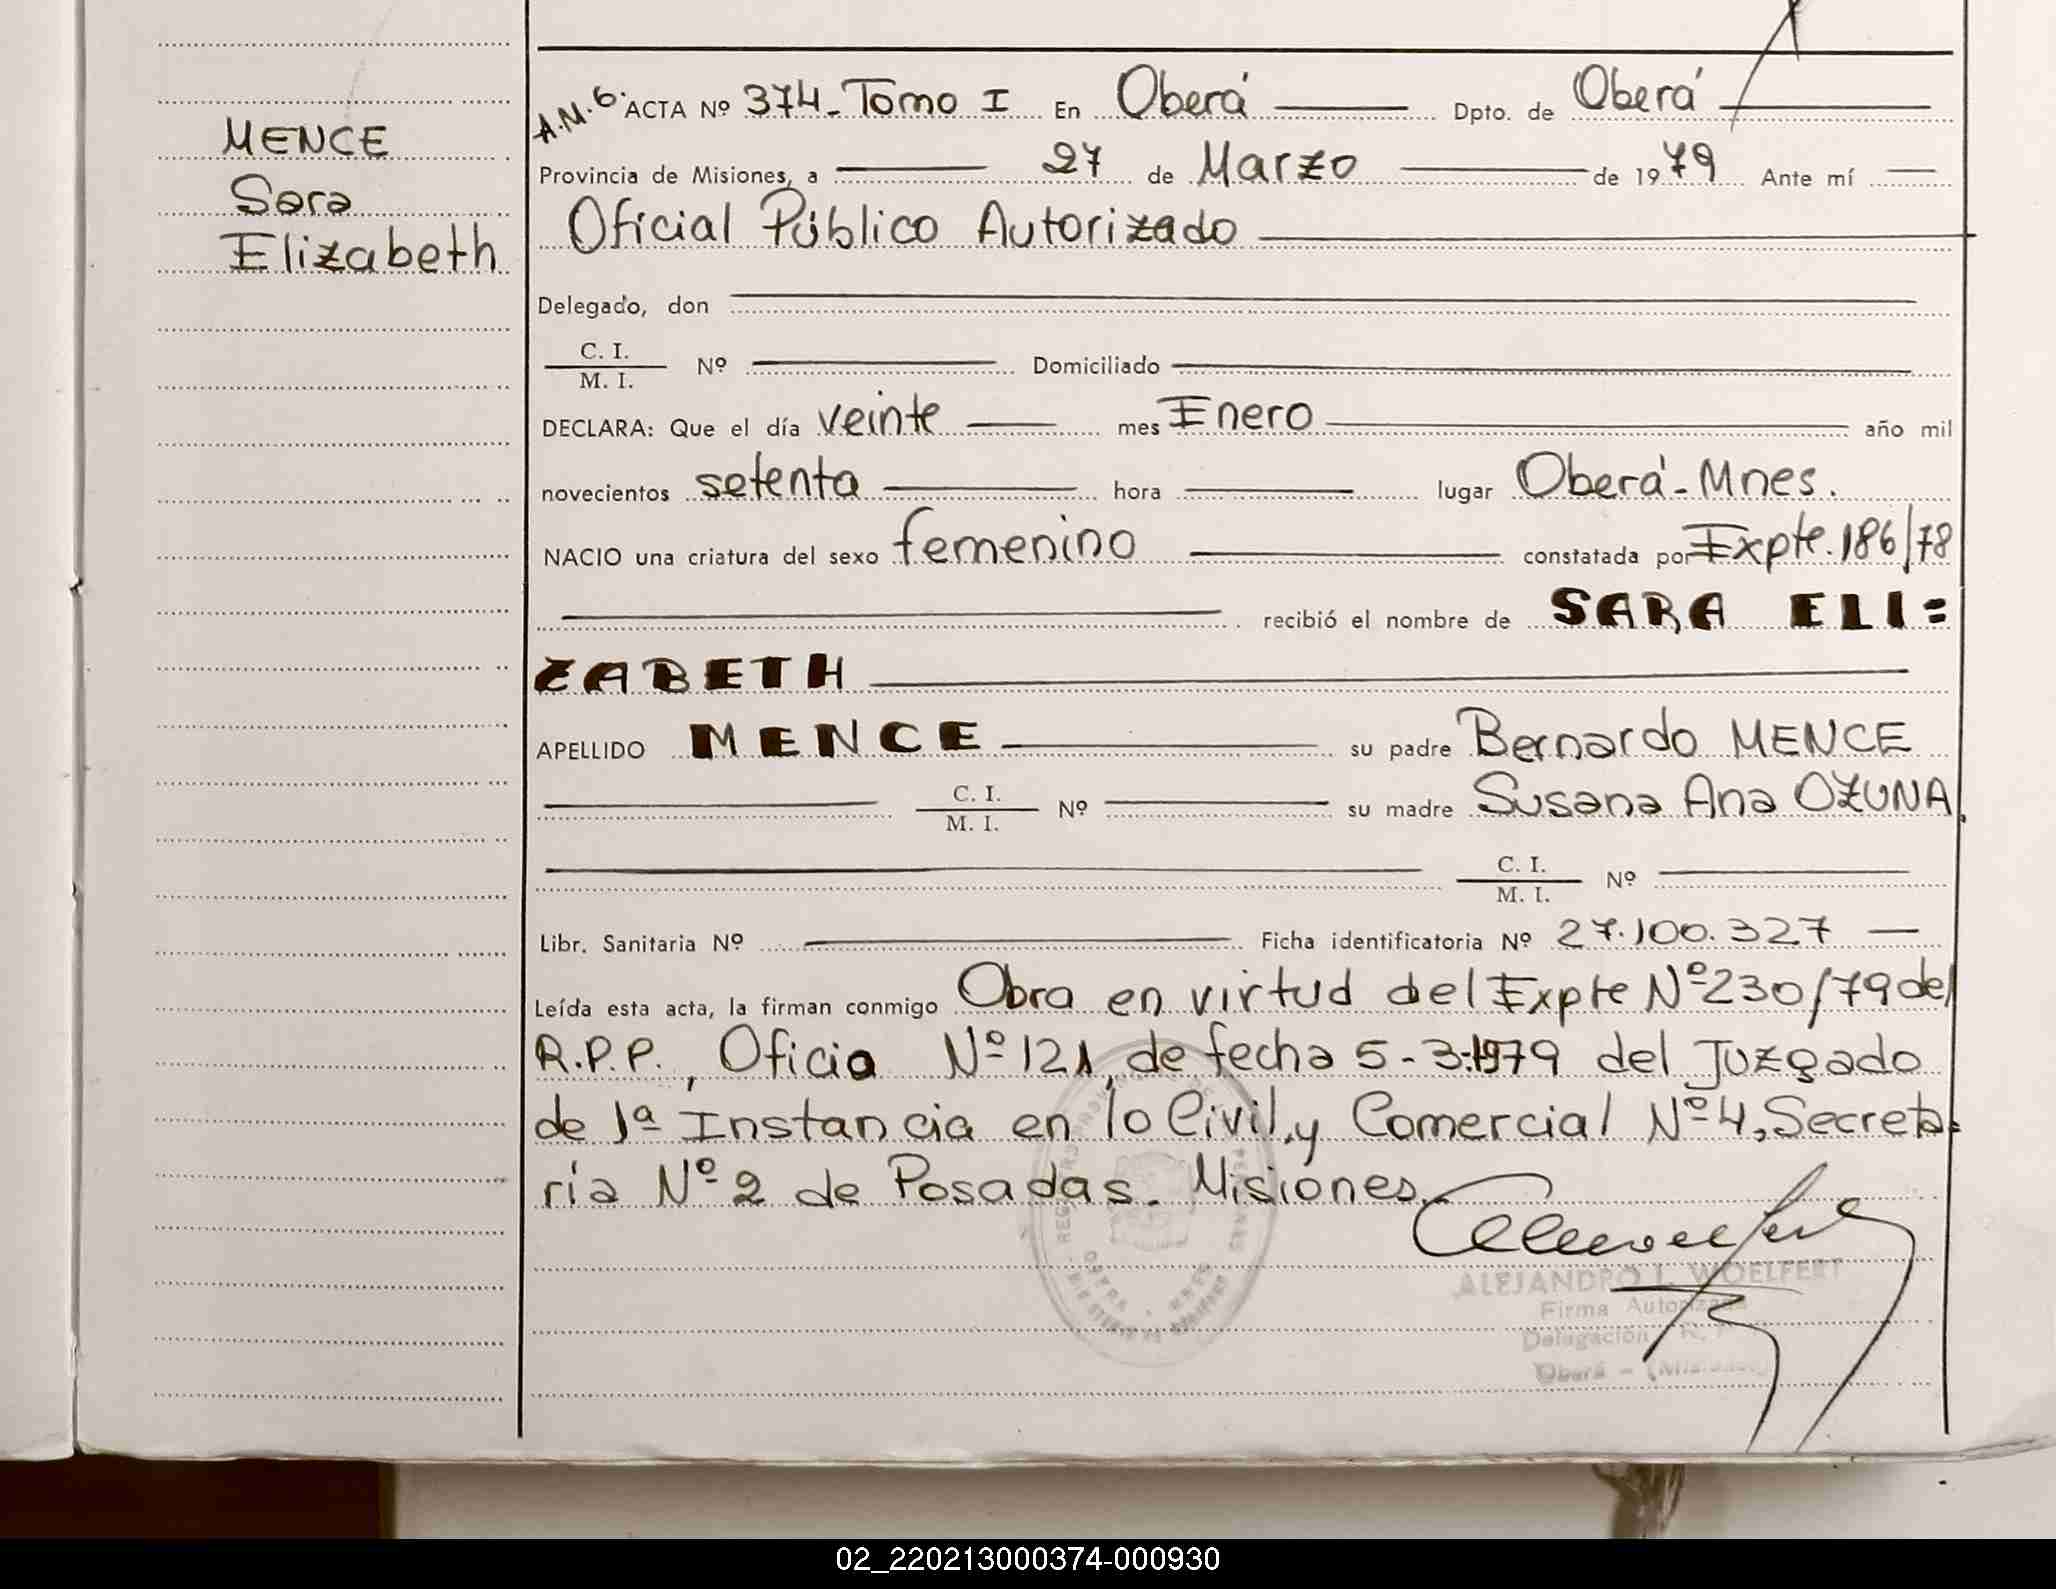 MENCE
Sara
Elizabeth
A.M.6. ACTA Nº 374-Tomo I En Oberá Dpto. de Oberá
Provincia de Misiones, a 27 de Marzo de 1979 Ante mí
Oficial Público Autorizado
Delegado, don
C. I.
M. I.
Nº Domiciliado
DECLARA: Que el día veinte mes Enero año mil
novecientos setenta hora lugar Oberá-Mnes.
NACIO una criatura del sexo femenino constatada por Expte. 186/78
recibió el nombre de SARA ELI=
ZABETH
APELLIDO MENCE su padre Bernardo MENCE
C. I.
M. I.
Nº su madre Susana Ana OZUNA,
C. I.
M. I.
Nº
Libr. Sanitaria Nº Ficha identificatoria Nº 27.100.327
Leída esta acta, la firman conmigo Obra en virtud del Expte Nº230/79 del
R.P.P., Oficio Nº 121, de fecha 5-3-1979 del Juzgado
de 1ª Instancia en lo Civil, y Comercial Nº4, Secreta=
ria Nº 2 de Posadas. Misiones.
ALEJANDRO I. WOELFERT
Firma Autorizada
Delegación R.
Oberá - (Misiones)
02_220213000374-000930